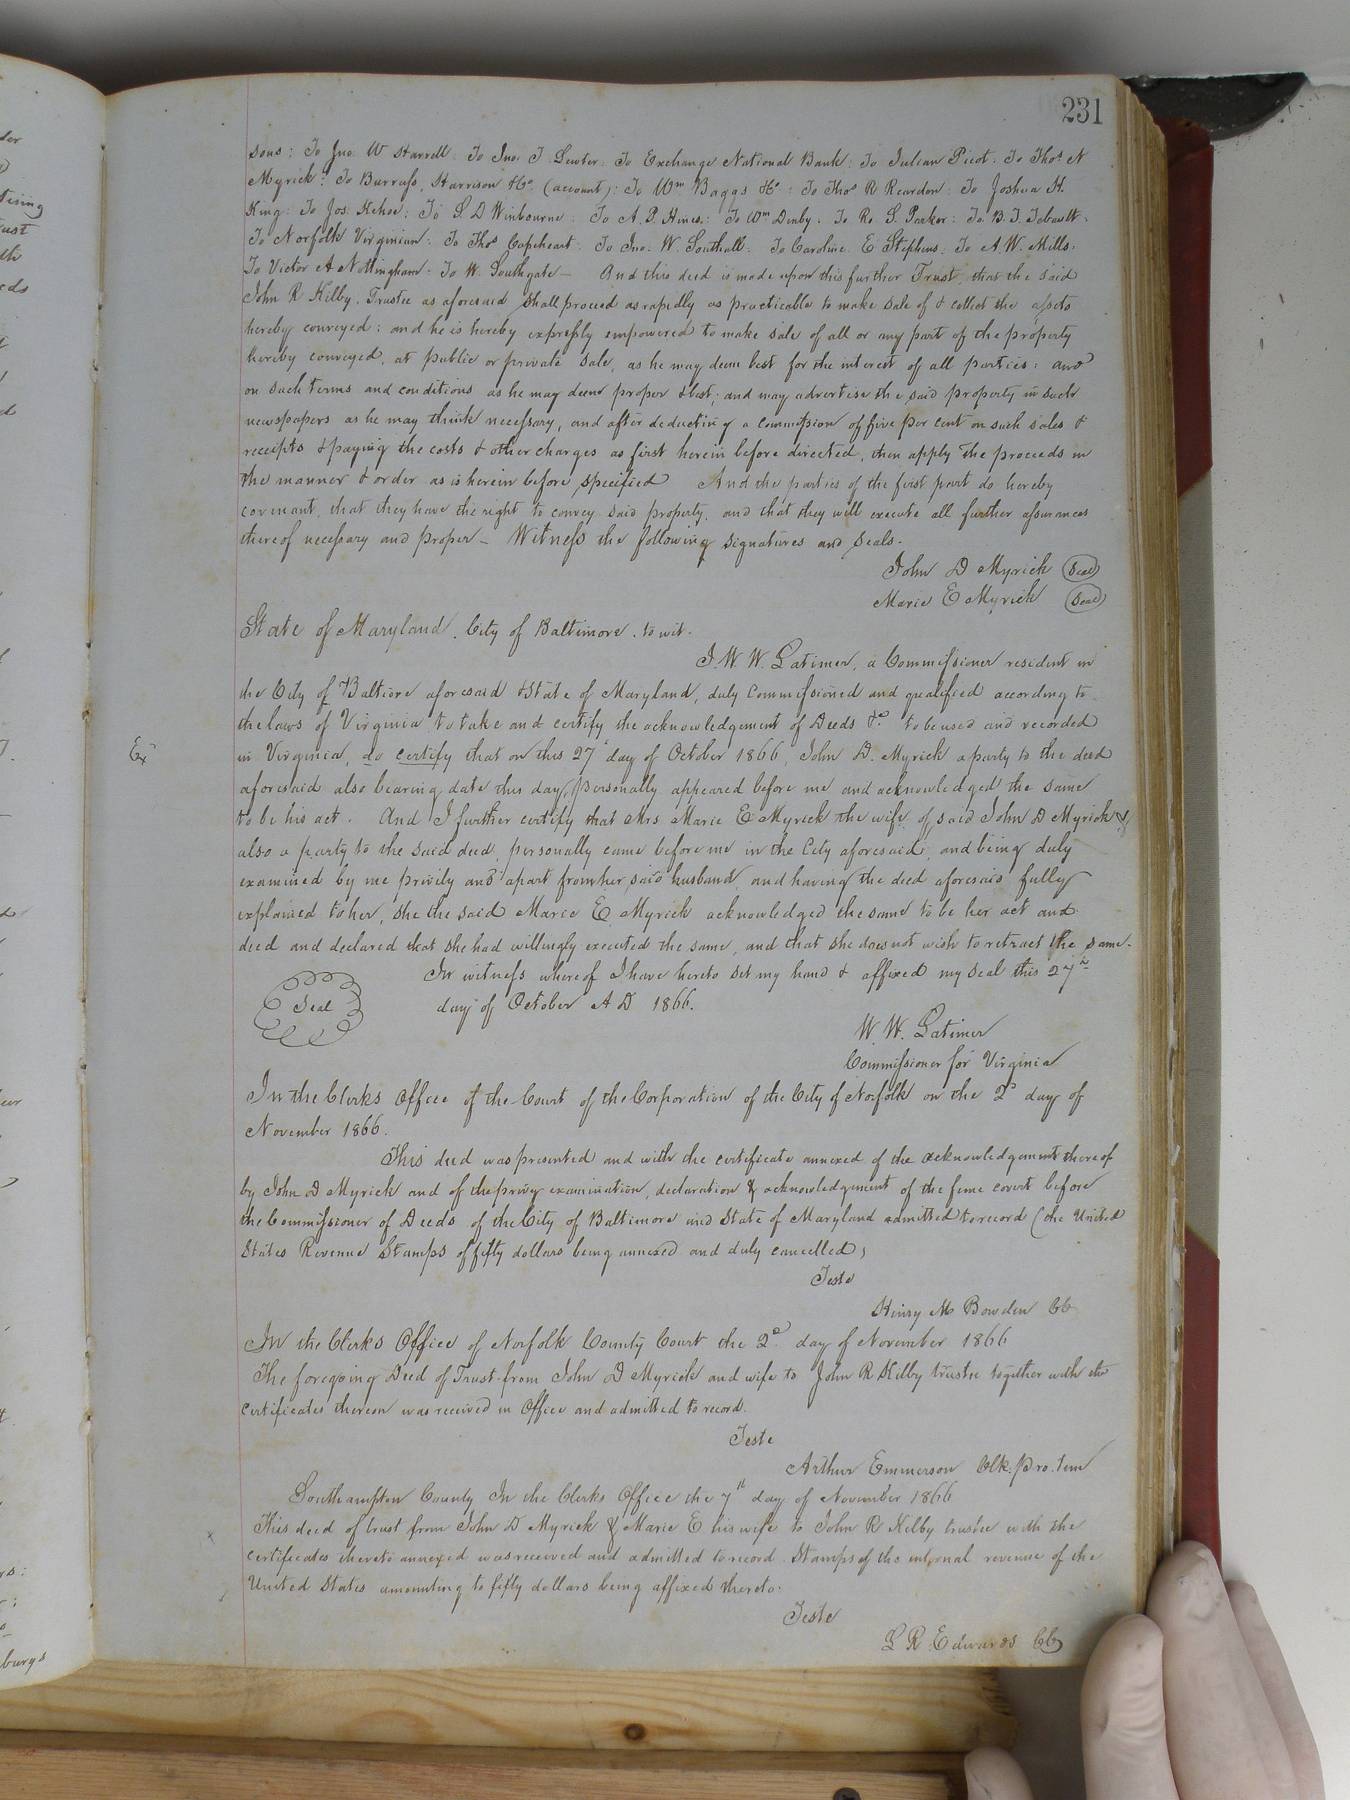 231
sons: To Jno. W Harrell: To Jno. T. Lewter: To Exchange National Bank: To Julian Picot: To Thos. N
Myrick: To Burruss, Harrison & Co. (account): To Wm Baggs & Co: To Thos R Reardon: To Joshua H.
King: To Jos. Kehoe: To S. D Winbourne: To A. P. Hines: To Wm Denby: To Ro. S. Parker: To B. T. Tebault:
To Norfolk Virginian: To Thos Capeheart: To Jno. W. Southall: To Caroline E Stephens: To A. W. Mills:
To Victor A Nottingham: To W. Southgate — And this deed is made upon this further Trust, that the said
John R Kilby, Trustee as aforesaid shall proceed as rapidly as practicable to make sale of & collect the assets
hereby conveyed: and he is hereby expressly empowered to make sale of all or any part of the property
hereby conveyed, at public or private sale, as he may deem best for the interest of all parties: and
on such terms and conditions as he may deem proper & best; and may advertise the said property in such
newspapers as he may think necessary, and after deducting a commission of five per cent on such sales &
receipts & paying the costs & other charges as first herein before directed, then apply the proceeds in
the manner & order as is herein before specified And the parties of the first part do hereby
covenant, that they have the right to convey said property, and that they will execute all further assurances
thereof necessary and proper — Witness the following signatures and seals.
John D Myrick (Seal)
Marie E Myrick (Seal)
State of Maryland. City of Baltimore. to wit.
I. W. W. Latimer, a Commissioner resident in
the City of Baltiore aforesaid & State of Maryland, duly commissioned and qualified according to
the laws of Virginia to take and certify the acknowledgement of Deeds &c to be used and recorded
Ex
in Virginia, do certify that on this 27 day of October 1866, John D. Myrick a party to the deed
aforesaid also bearing date this day, personally appeared before me and acknowledged the same
to be his act. And I further certify that Mrs Marie E Myrick the wife of said John D Myrick &
also a party to the said deed, personally came before me in the City aforesaid, and being duly
examined by me privily and apart from her said husband and having the deed aforesaid fully
explained to her, she the said Marie E. Myrick acknowledged the same to be her act and
deed and declared that she had willingly executed the same, and that she does not wish to retract the same.
In witness whereof I have hereto set my hand & affixed my seal this 27th
Seal
day of October A D 1866.
W. W. Latimer
Commissioner for Virginia
In the Clerks Office of the Court of the Corporation of the City of Norfolk on the 2d day of
November 1866.
This deed was presented and with the certificate annexed of the acknowledgement thereof
by John D Myrick and of the privy examination, declaration & acknowledgement of the feme covert before
the Commissioner of Deeds of the City of Baltimore and State of Maryland admitted to record (the United
States Revenue Stamps of fifty dollars being annexed and duly cancelled)
Teste
Henry M Bowden CC
In the Clerks Office of Norfolk County Court the 2d day of November 1866
The foregoing Deed of Trust from John D Myrick and wife to John R Kilby trustee together with the
certificates thereon was received in Office and admitted to record.
Teste
Arthur Emmerson Clk. pro. tem
Southampton County In the Clerks Office the 7th day of November 1866
This deed of trust from John D Myrick & Marie E his wife to John R Kilby trustee with the
certificates thereto annexed was received and admitted to record. Stamps of the internal revenue of the
United States amounting to fifty dollars being affixed thereto.
Teste
L R Edwards CC